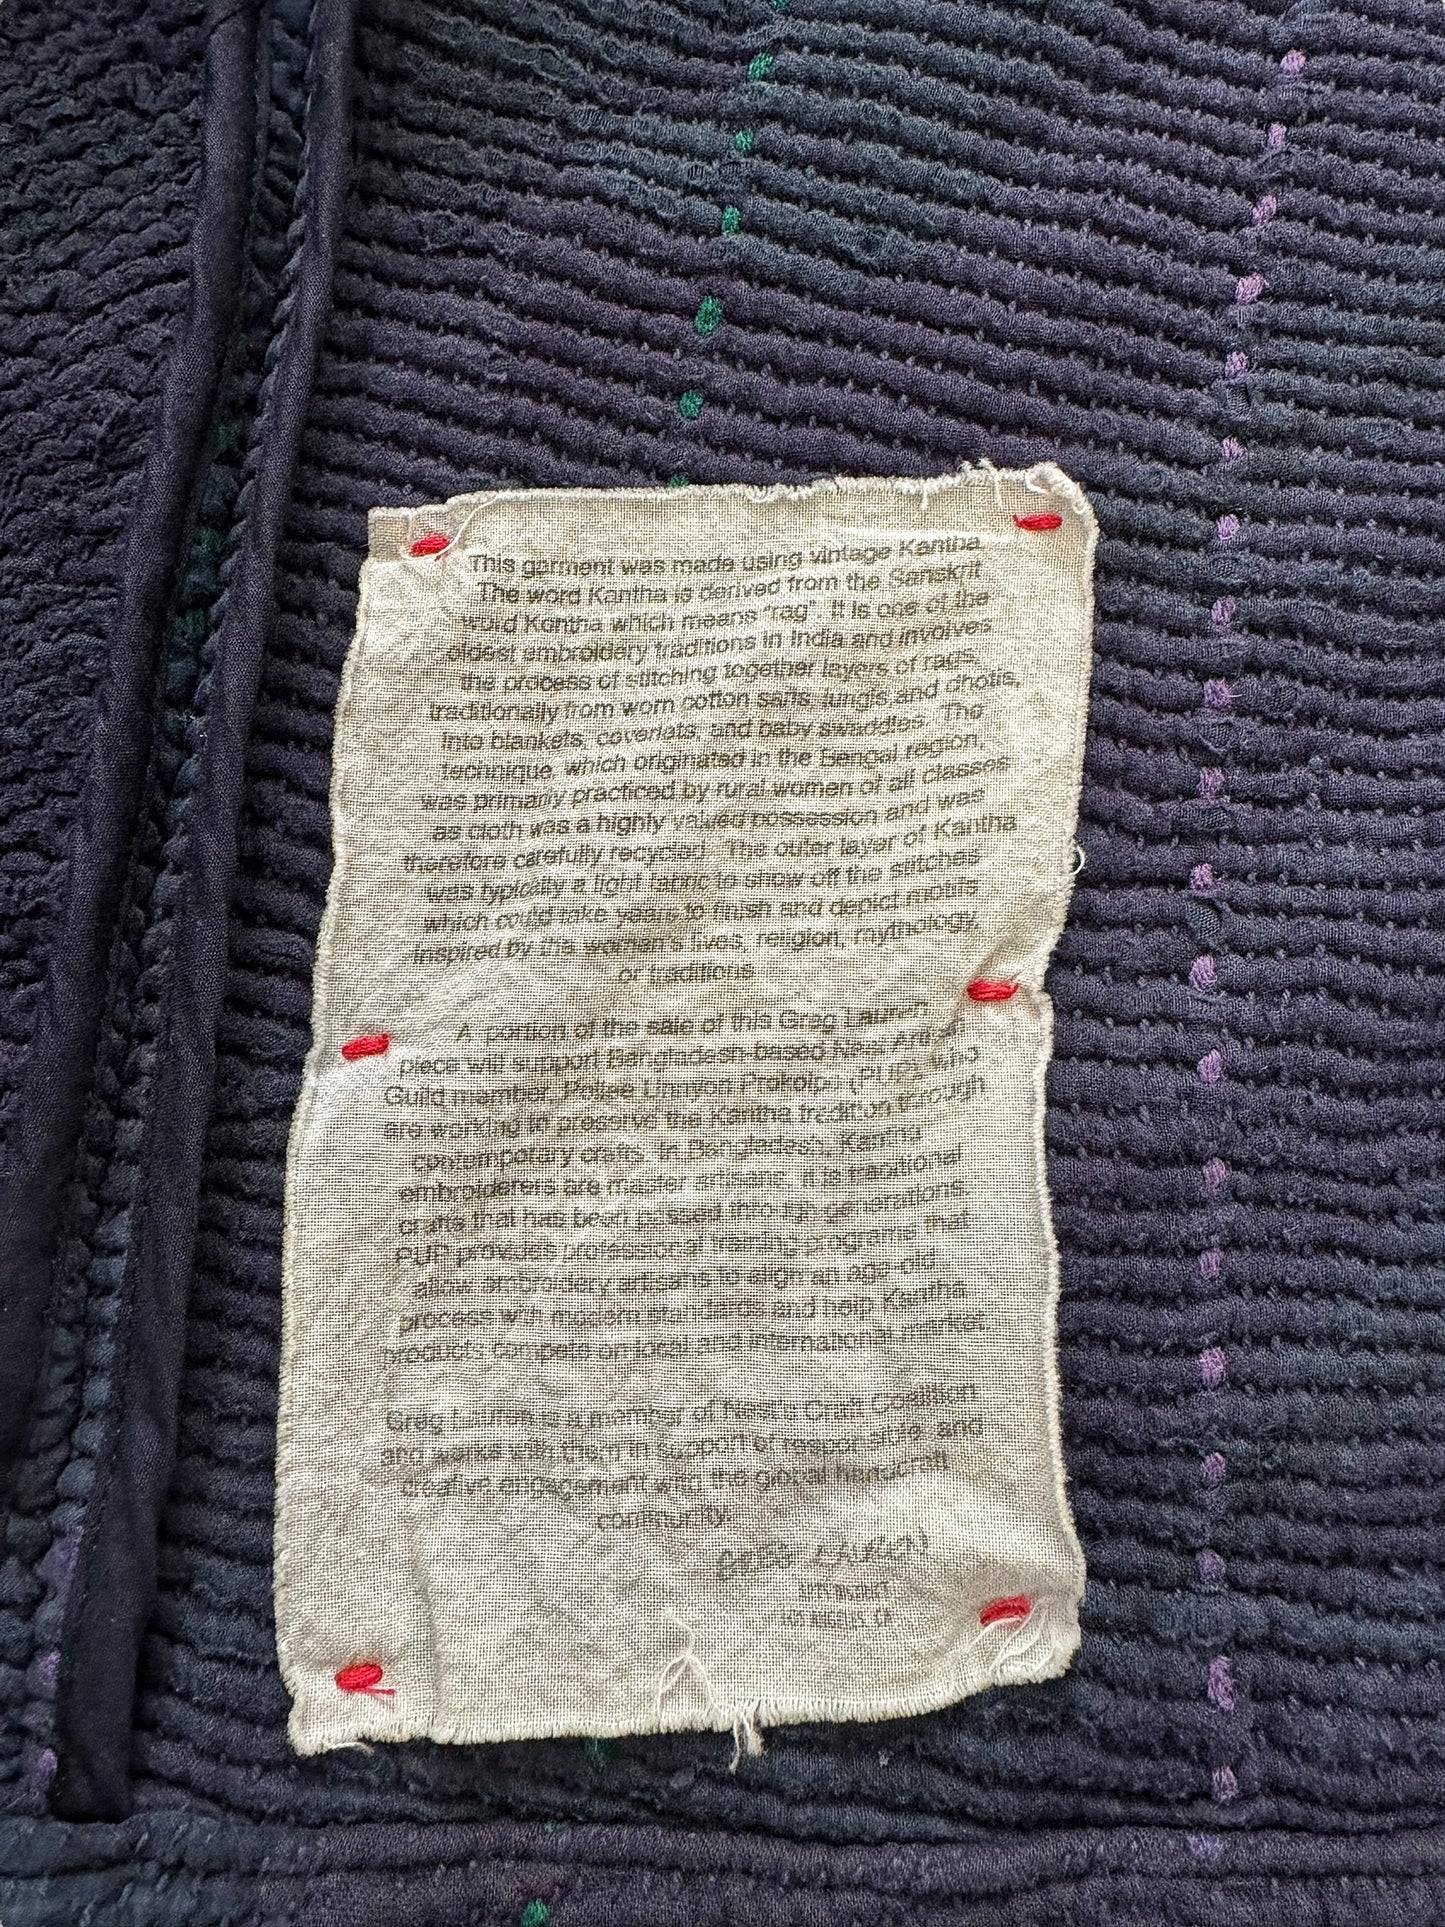 This garment was made using vintage Kantha.
The word Kantha is derived from the Sanskrit
word Kontha which means "rag". It is one of the
oldest embroidery traditions in India and involves
the process of stitching together layers of rags,
traditionally from worn cotton saris, lungis and dhotis,
into blankets, coverlets, and baby swaddles. The
technique, which originated in the Bengal region,
was primarily practiced by rural women of all classes
as cloth was a highly valued possession and was
therefore carefully recycled. The outer layer of Kantha
was typically a light fabric to show off the stitches
which could take years to finish and depict motifs
inspired by the women's lives, religion, mythology,
or traditions.
A portion of the sale of this Greg Lauren
piece will support Bangladesh-based Nest Artisan
Guild member, Pollee Unnyon Prokolpo (PUP), who
are working to preserve the Kantha tradition through
contemporary crafts. In Bangladesh, Kantha
embroiderers are master artisans. It is traditional
crafts that has been passed through generations.
PUP provides professional training programs that
allow embroidery artisans to align an age-old
process with modern standards and help Kantha
products compete on local and international market.
Greg Lauren is a member of Nest's Craft Coalition
and works with them in support of responsible and
creative engagement with the global handcraft
community.
GREG LAUREN
LOS ANGELES, CA